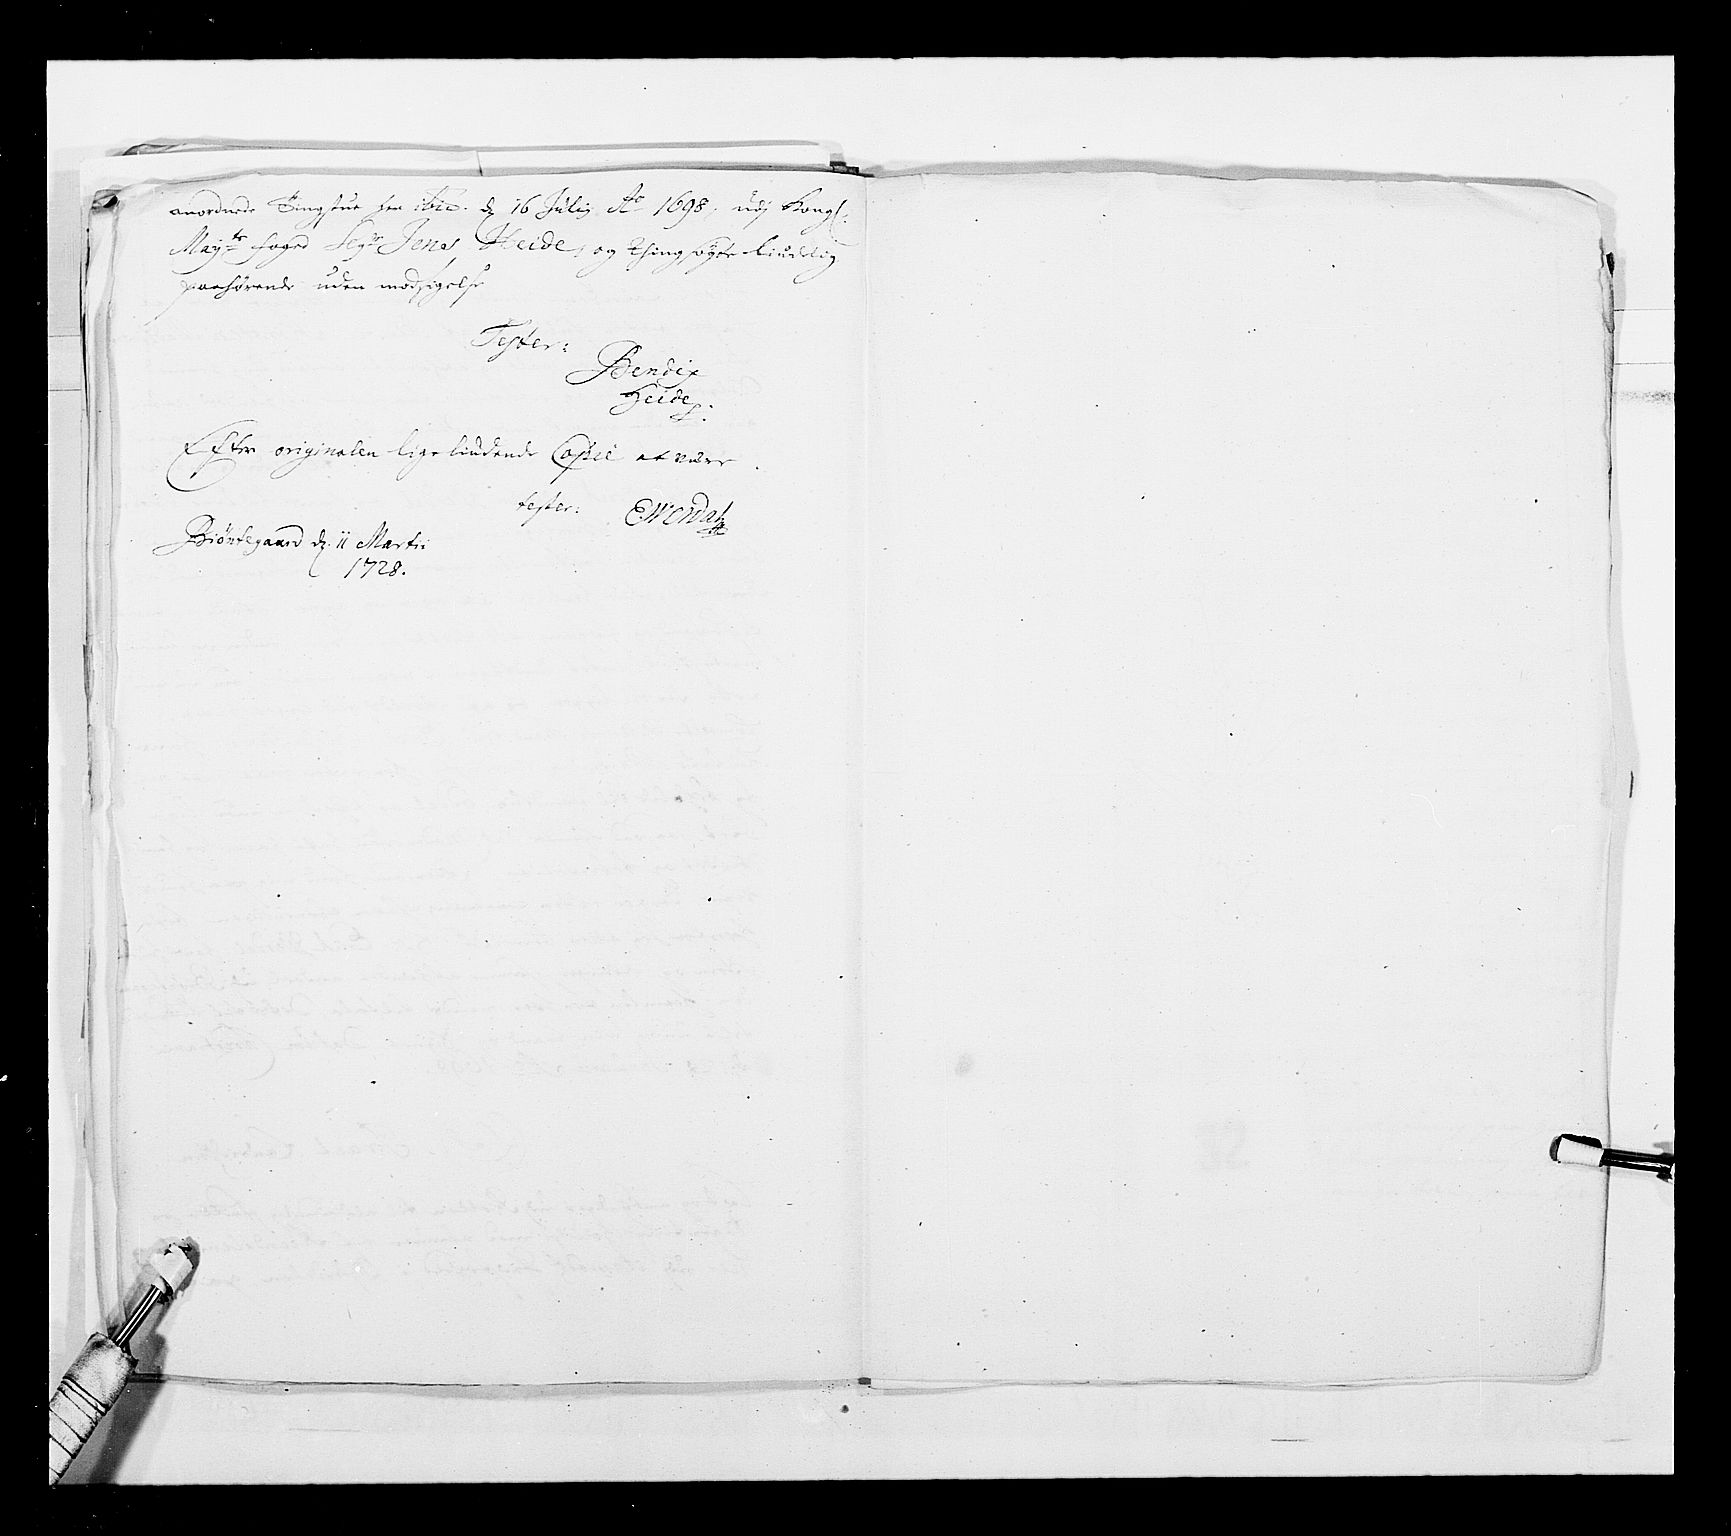 anordnede Tingstue her ibid. d. 16 Julij Ao 1698, udj Kongl:
Maytts foged Segr Jens Heide, og Thingsøgte liudelig
paahørende uden modsigelse
Tester:
Bendix
Heide
Efter originalen lige liudende Copie at være
tester:
Biöntegaard d. 11 Martii
1728.